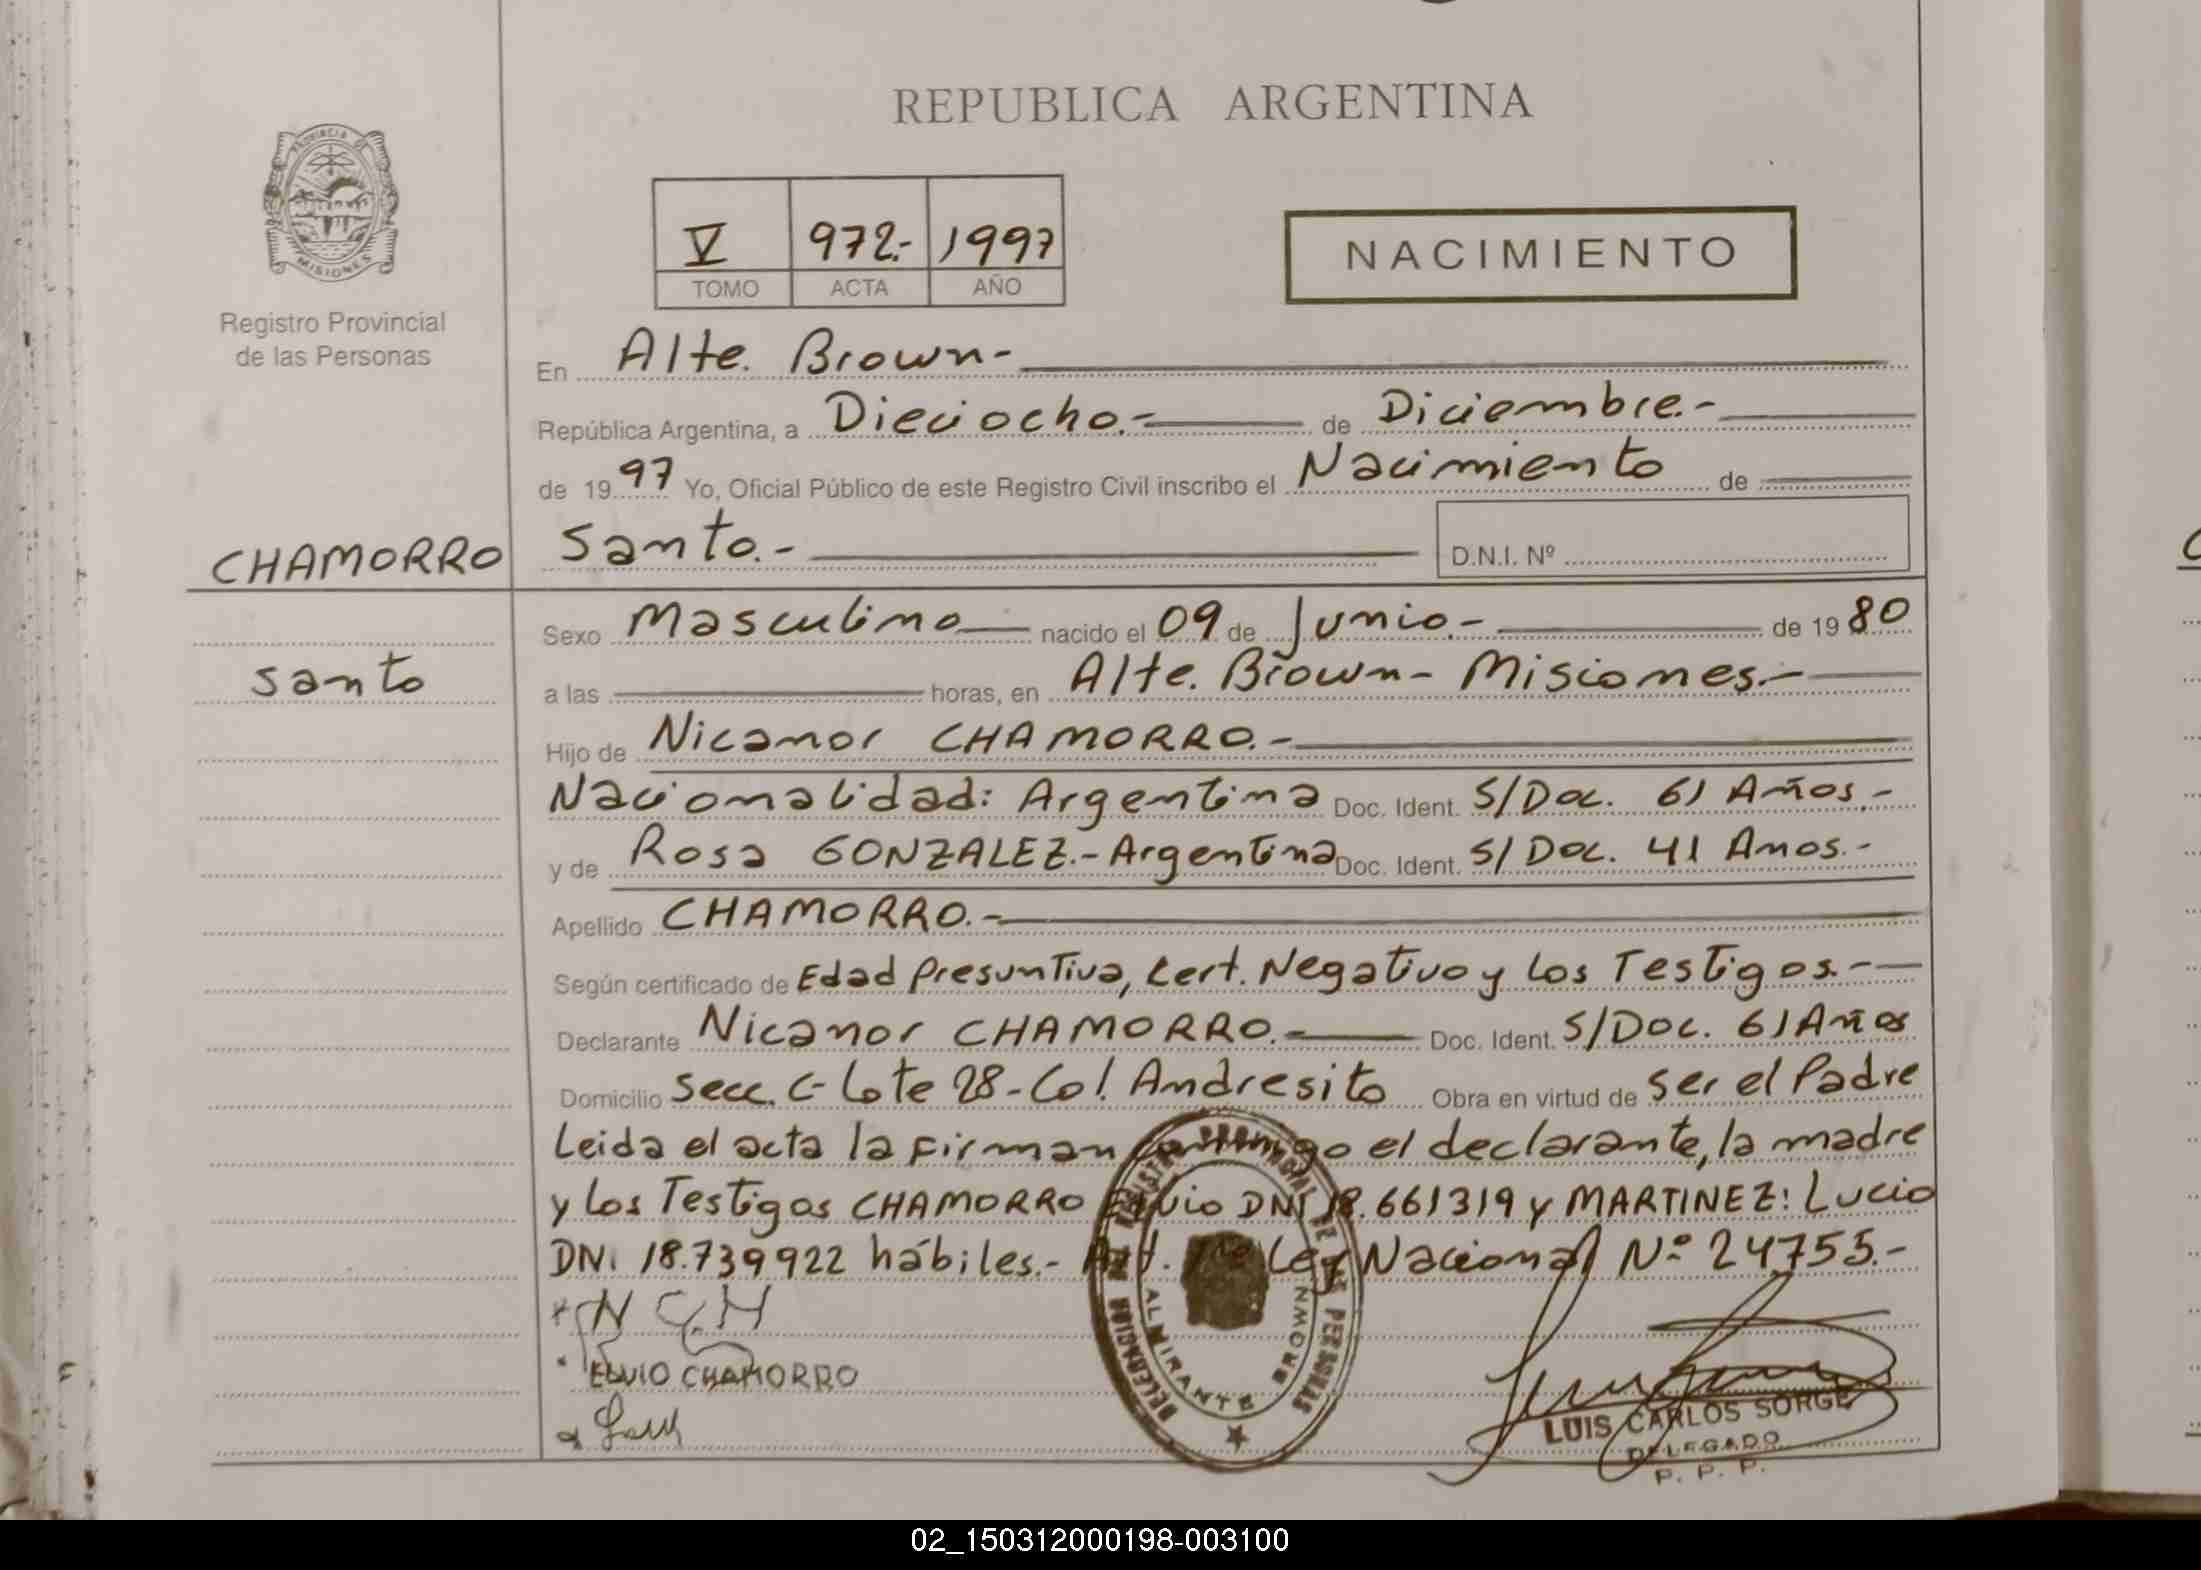 REPUBLICA ARGENTINA
PROVINCIA DE
MISIONES
Registro Provincial
de las Personas
V 972.- 1997
TOMO ACTA AÑO
NACIMIENTO
En Alte. Brown-
República Argentina, a Dieciocho.- de Diciembre.-
de 1997 Yo, Oficial Público de este Registro Civil inscribo el Nacimiento de
CHAMORRO
Santo.-
D.N.I. Nº
Sexo Masculino nacido el 09 de Junio.- de 1980
Santo
a las horas, en Alte. Brown- Misiones.-
Hijo de Nicanor CHAMORRO.-
Nacionalidad: Argentina Doc. Ident. S/Doc. 61 Años.-
y de Rosa GONZALEZ.- Argentina Doc. Ident. S/Doc. 41 Anos.-
Apellido CHAMORRO.-
Según certificado de Edad Presuntiva, Cert. Negativo y los Testigos.-
Declarante Nicanor CHAMORRO.- Doc. Ident. S/Doc. 61 Años
Domicilio Secc. C- Lote 28- Col. Andresito Obra en virtud de Ser el Padre
Leida el acta la Firman conmigo el declarante, la madre
y los Testigos CHAMORRO Elvio DNI 18.661319 y MARTINEZ: Lucio
DNI 18.739922 hábiles.- Art. Ley Nacional Nº 24.755.-
N C H
ELVIO CHAMORRO
REGISTRO PROVINCIAL DE LAS PERSONAS
DELEGACION
ALMIRANTE BROWN
LUIS CARLOS SORGE
DELEGADO
P. P. P.
02_150312000198-003100